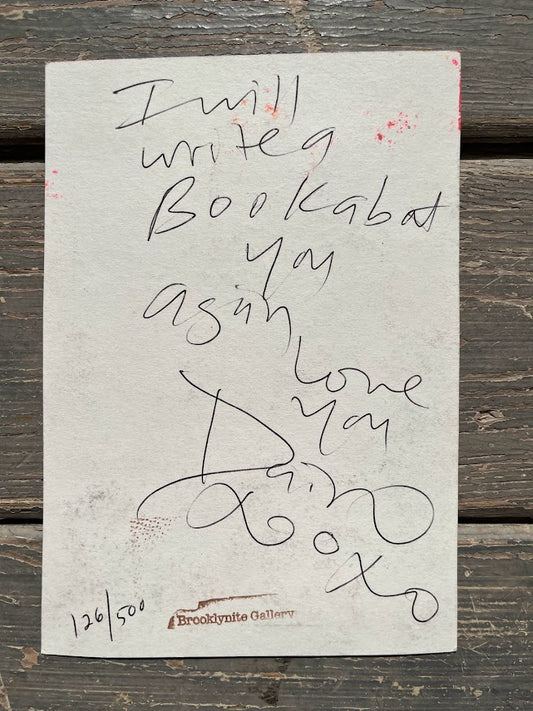 I will
write a
Book abot
you
again
Love
You
Dain
xoxo
126/500
Brooklynite Gallery